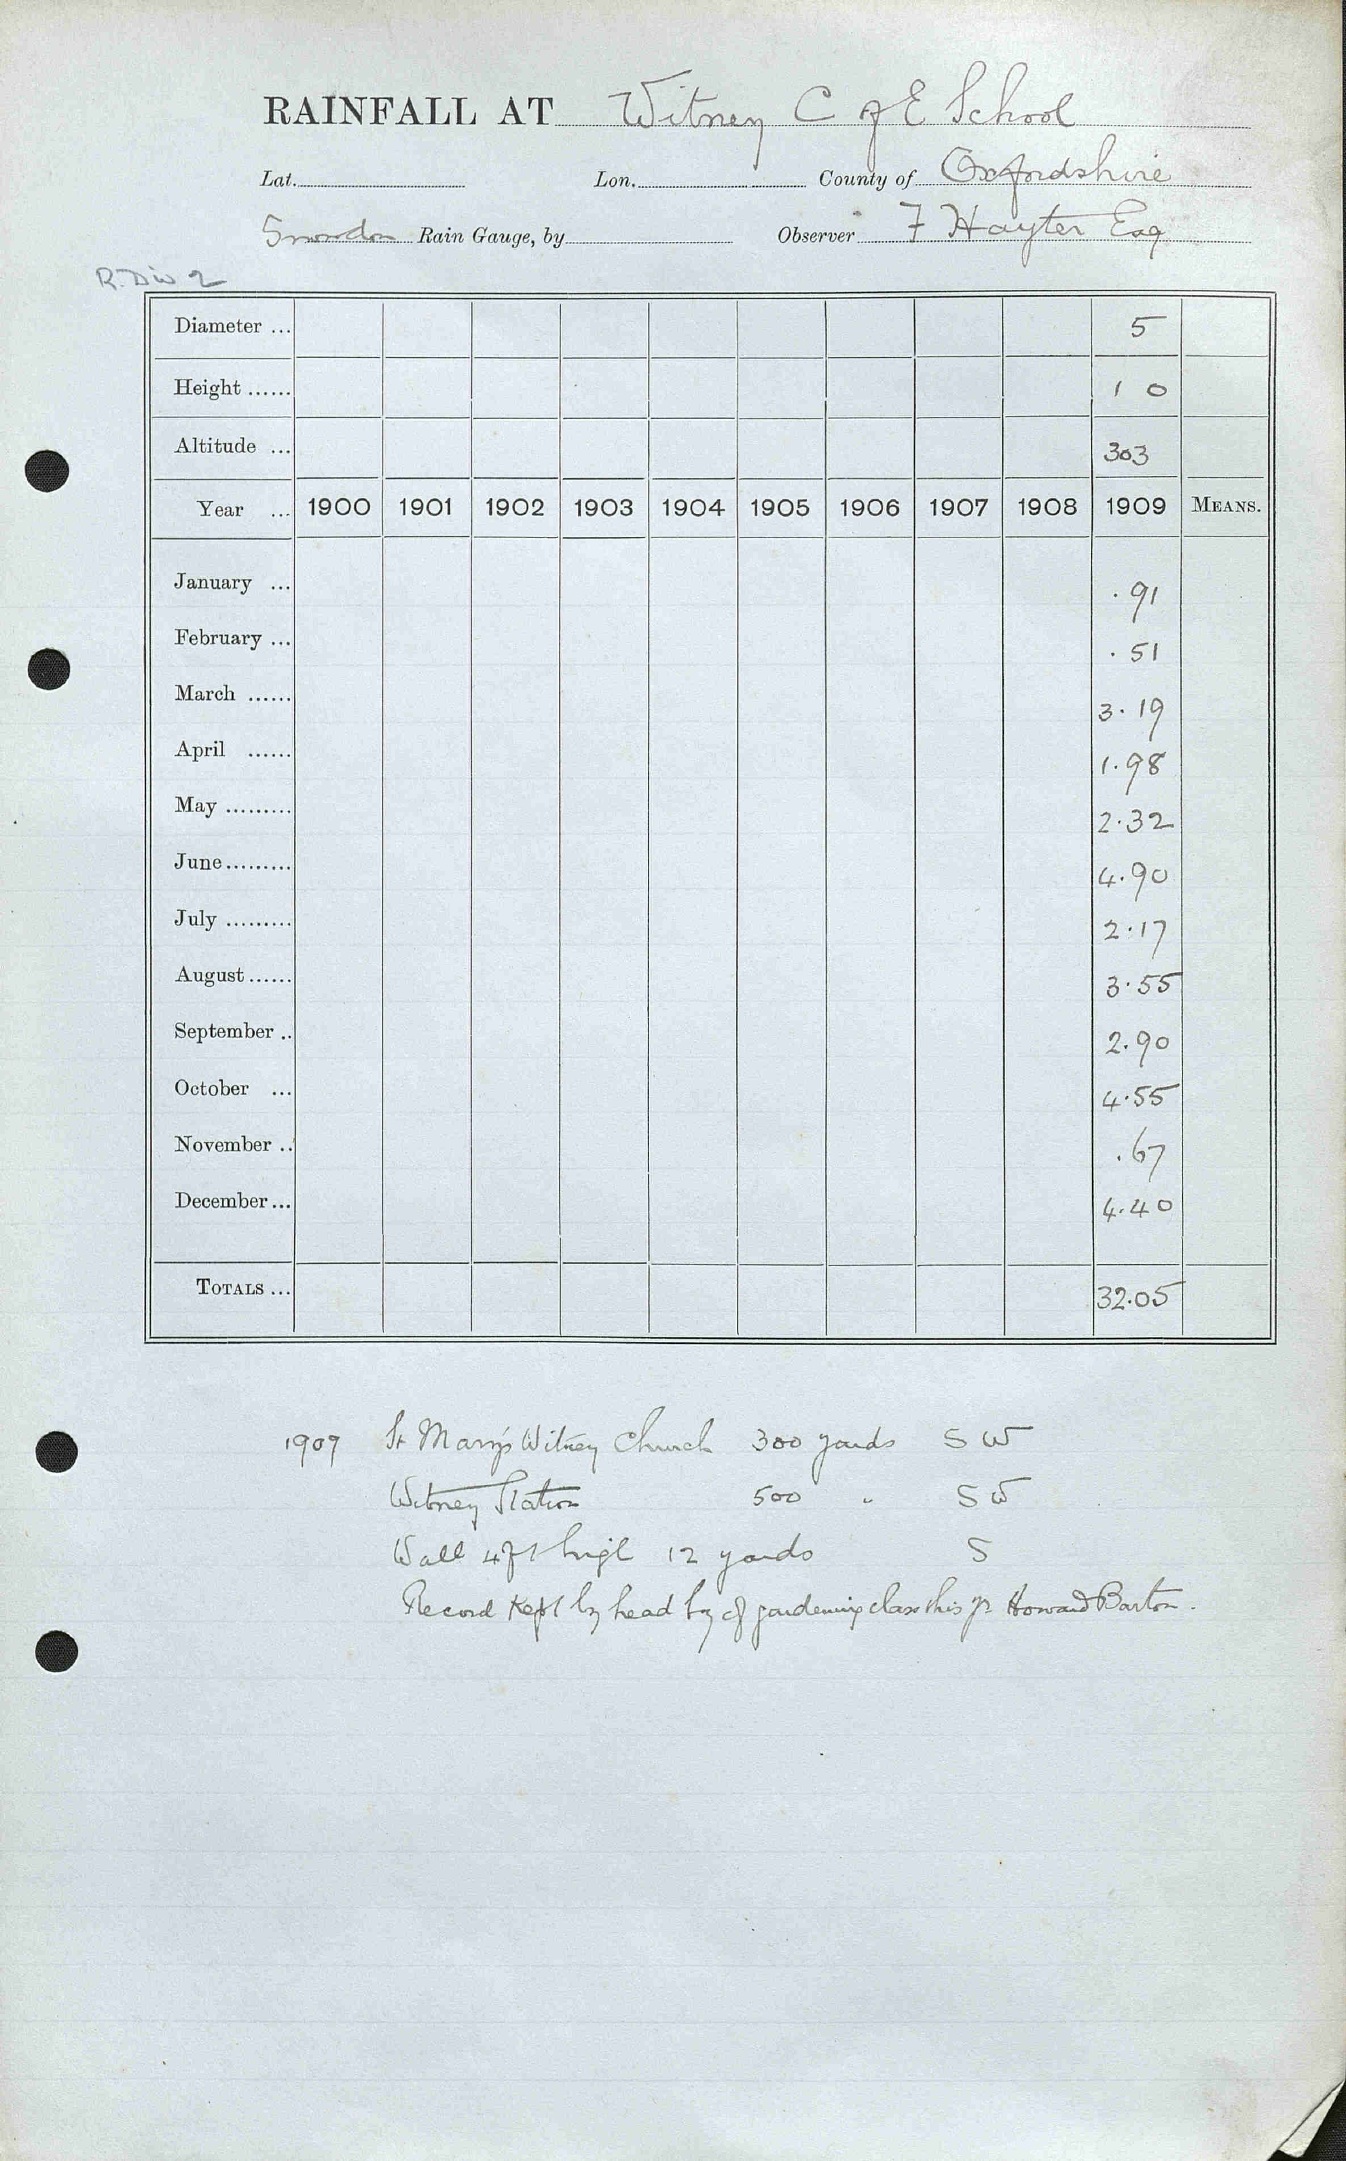 RAINFALL AT Witney C of E School
Lat. Lon. County of Oxfordshire
Snowdon Rain Gauge, by Observer F Hayter Esq
R. Div 2
Diameter ... 5
Height ...... 1 0
Altitude ... 303
Year ... 1900 1901 1902 1903 1904 1905 1906 1907 1908 1909 MEANS.
January ... .91
February ... .51
March ...... 3.19
April ...... 1.98
May ......... 2.32
June ......... 4.90
July ......... 2.17
August ...... 3.55
September .. 2.90
October ... 4.55
November .. .67
December ... 4.40
TOTALS ... 32.05
1909 St Mary's Witney Church 300 yards S W
Witney Station 500 " S W
Wall 4 ft high 12 yards S
Record kept by head boy of gardening class this yr Howard Barton.